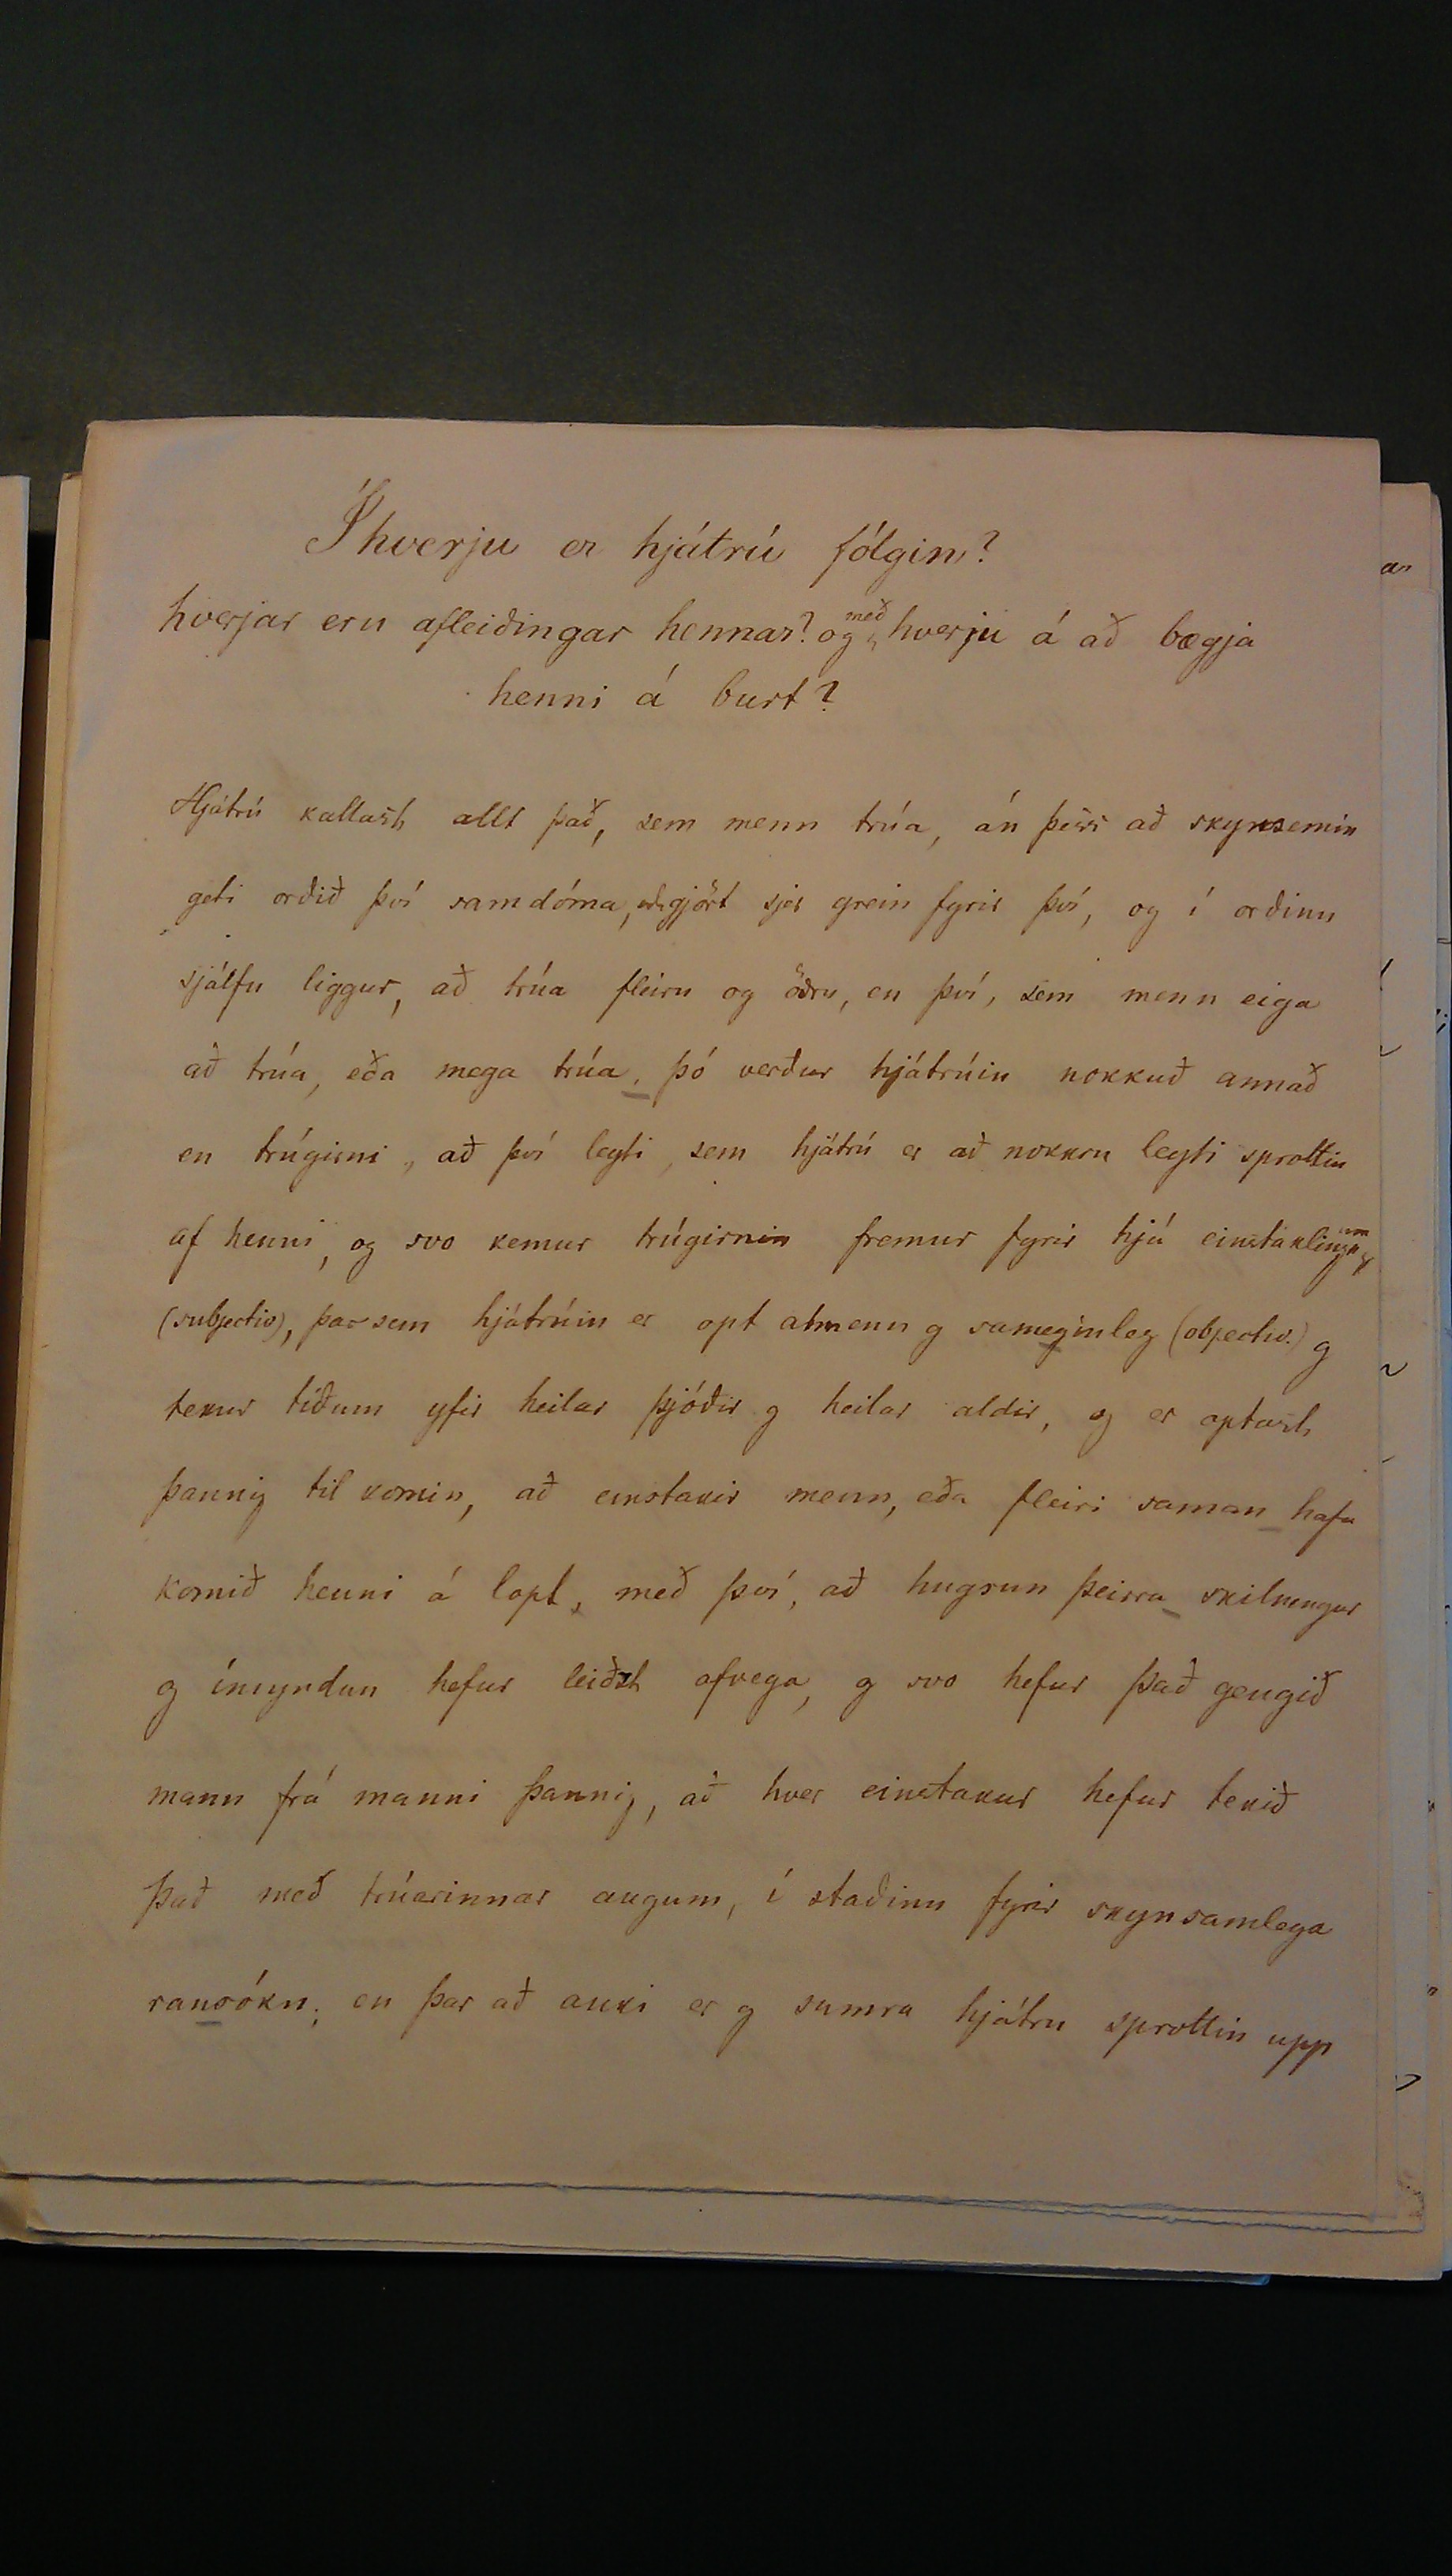 Í hverju er hjátrú fólgin?
hverjar eru afleiðingar hennar? og með hverju á að bægja
henni á burt?
Hjátrú kallast allt það, sem menn trúa, án þess að skynsemin
geti orðið því samdóma, eða gjört sjer grein fyrir því, og í orðinu
sjálfu liggur, að trúa fleiru og öðru, en því, sem menn eiga
að trúa, eða mega trúa, þó verður hjátrúin nokkuð annað
en trúgirni, að því leyti, sem hjátrú er að nokkru leyti sprottin
af henni, og svo kemur trúgirnin fremur fyrir hjá einstaklingum
(subjectiv), þar sem hjátrúin er opt almenn og sameginleg (objectiv.) og
tekur tíðum yfir heilar þjóðir og heilar aldir, og er optast
þannig til komin, að einstakir menn, eða fleiri saman hafa
komið henni á lopt, með því, að hugsun þeirra skilningur
og ímyndun hefur leiðst afvega, og svo hefur það gengið
mann frá manni þannig, að hver einstakur hefur tekið
það með trúarinnar augum, í staðinn fyrir skynsamlega
ransókn; en þar að auki er og sumra hjátrú sprottin upp